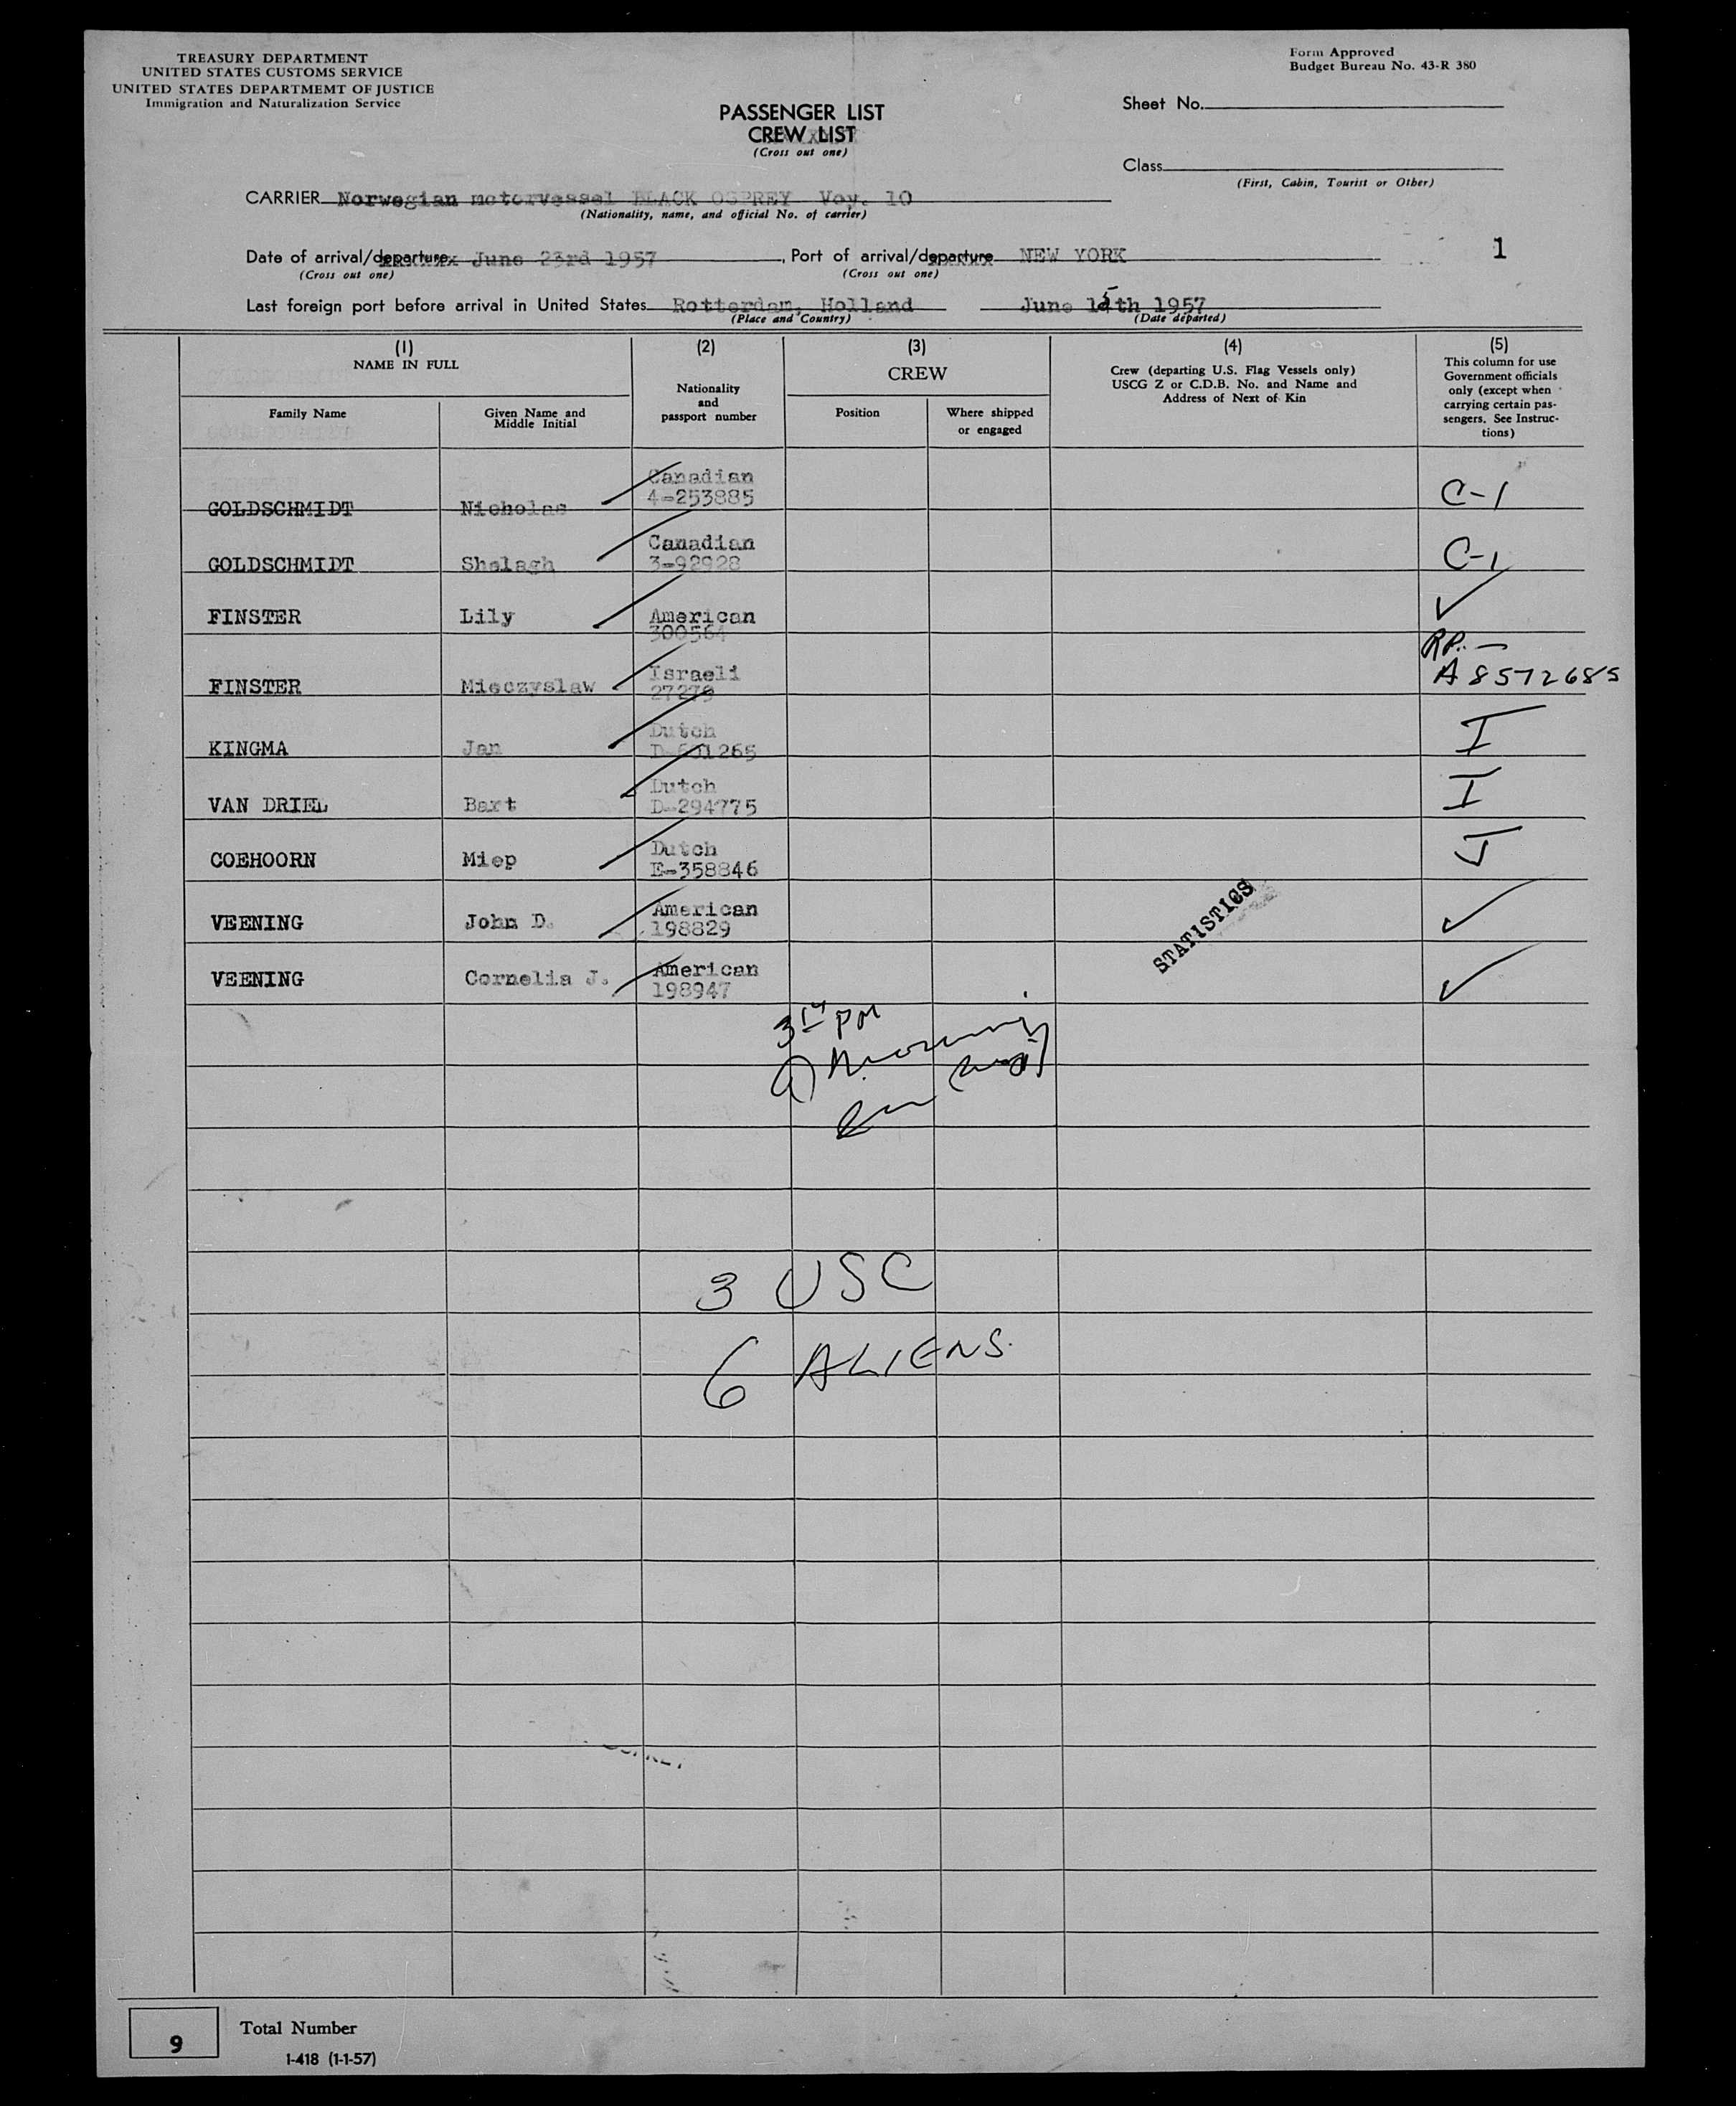 TREASURY DEPARTMENT
UNITED STATES CUSTOMS SERVICE
UNITED STATES DEPARTMEMT OF JUSTICE
Immigration and Naturalization Service
Form Approved
Budget Bureau No. 43-R 380
PASSENGER LIST
CREW LIST
(Cross out one)
Sheet No.
Class
(First, Cabin, Tourist or Other)
CARRIER Norwegian motorvessel BLACK OSPREY Voy. 10
(Nationality, name, and official No. of carrier)
Date of arrival/departure June 23rd 1957, Port of arrival/departure NEW YORK
(Cross out one) (Cross out one)
1
Last foreign port before arrival in United States Rotterdam, Holland June 15th 1957
(Place and Country) (Date departed)
(1) (2) (3) (4) (5)
NAME IN FULL
Nationality and passport number
CREW
Crew (departing U.S. Flag Vessels only)
USCG Z or C.D.B. No. and Name and
Address of Next of Kin
This column for use
Government officials
only (except when
carrying certain pas-
sengers. See Instruc-
tions)
Family Name
Given Name and
Middle Initial
Position
Where shipped
or engaged
GOLDSCHMIDT Nicholas Canadian 4-253885 C-1
GOLDSCHMIDT Shelagh Canadian 3-92928 C-1
FINSTER Lily American 300564
FINSTER Mieczyslaw Israeli 27279 RP. — A8572685
KINGMA Jan Dutch I
VAN DRIEL Bart Dutch D-294775 I
COEHOORN Miep Dutch E-358846
VEENING John D. American 198829
VEENING Cornelia J. American 198947
STATISTICS
PM
3 USC
6 ALIENS.
9
Total Number
I-418 (1-1-57)